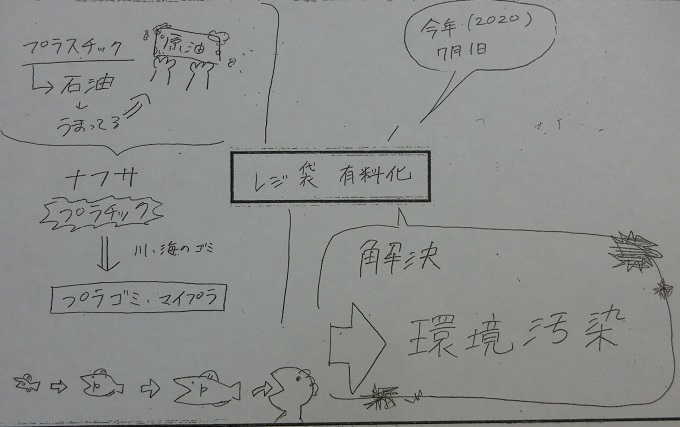 プラスチック
石油
うまってる
原油
ナフサ
プラチック
川、海のゴミ
プラゴミ・マイプラ
今年(2020)
7月1日
レジ袋 有料化
解決
環境汚染